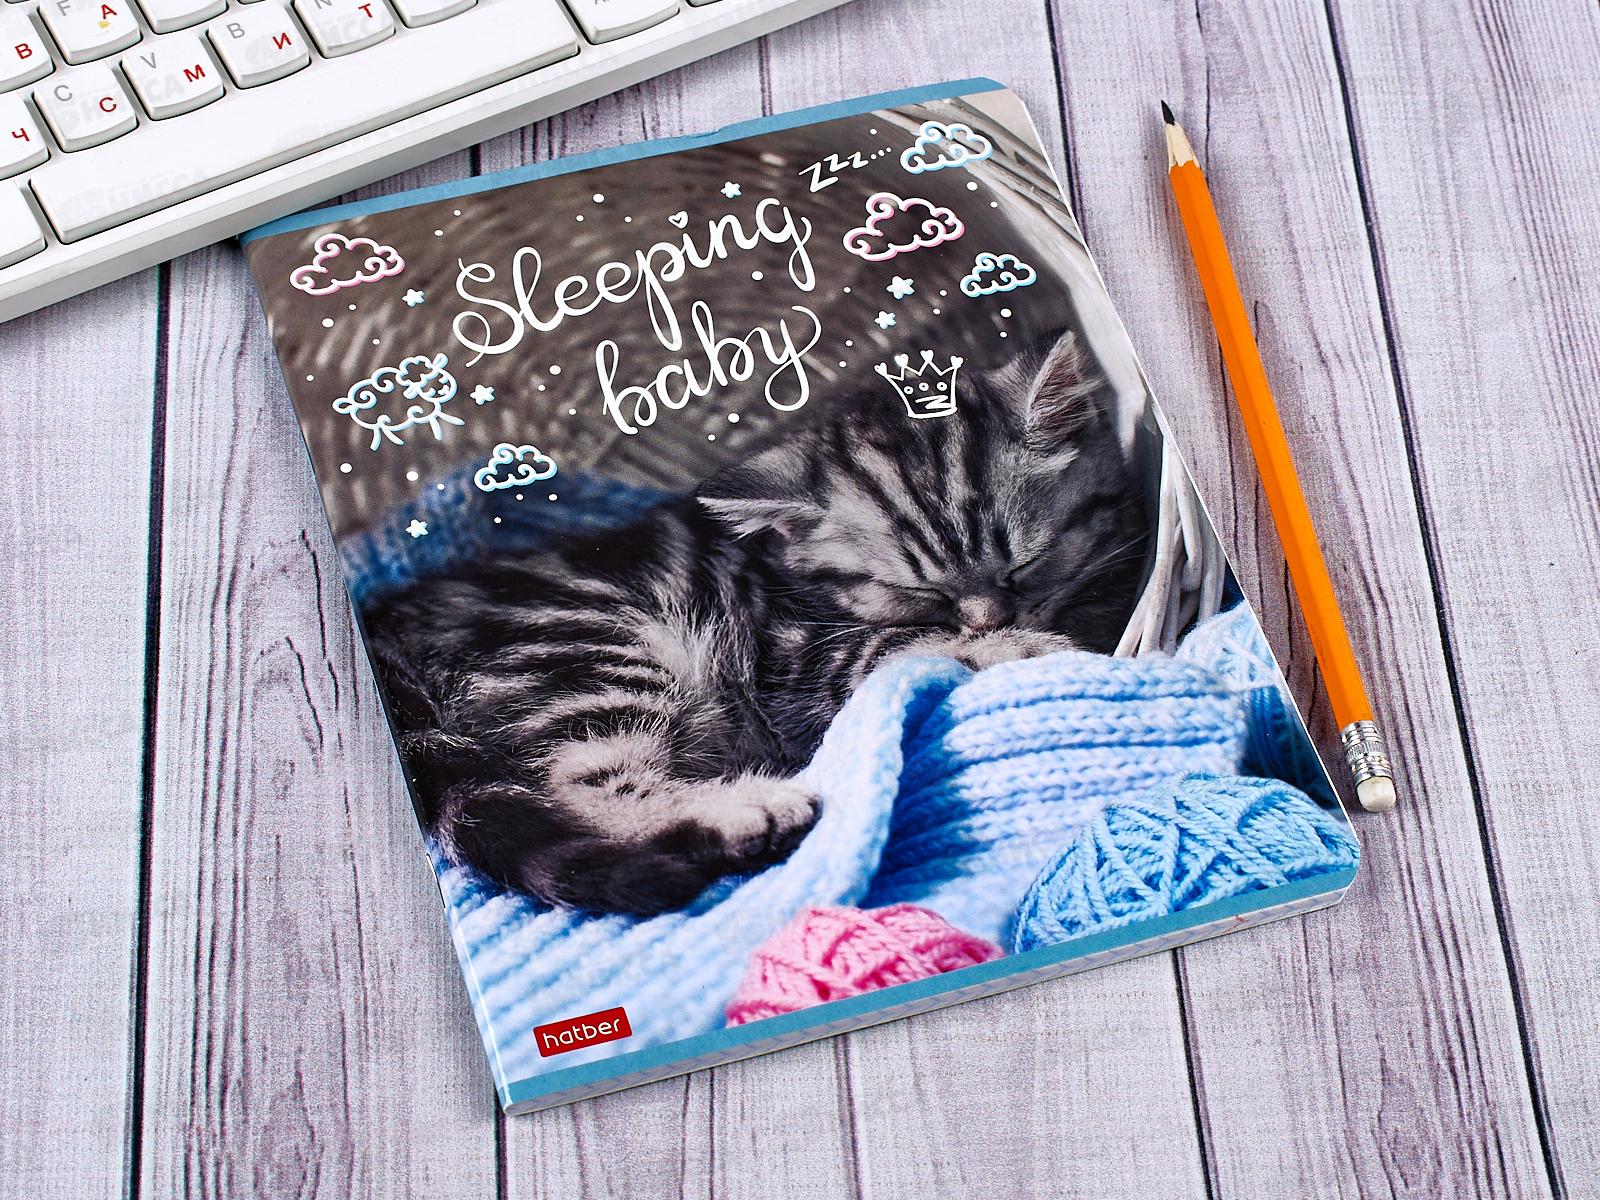 F А
В
V М
B И
N Т
C С
Ч
zzz...
Sleeping
baby
z
hatber